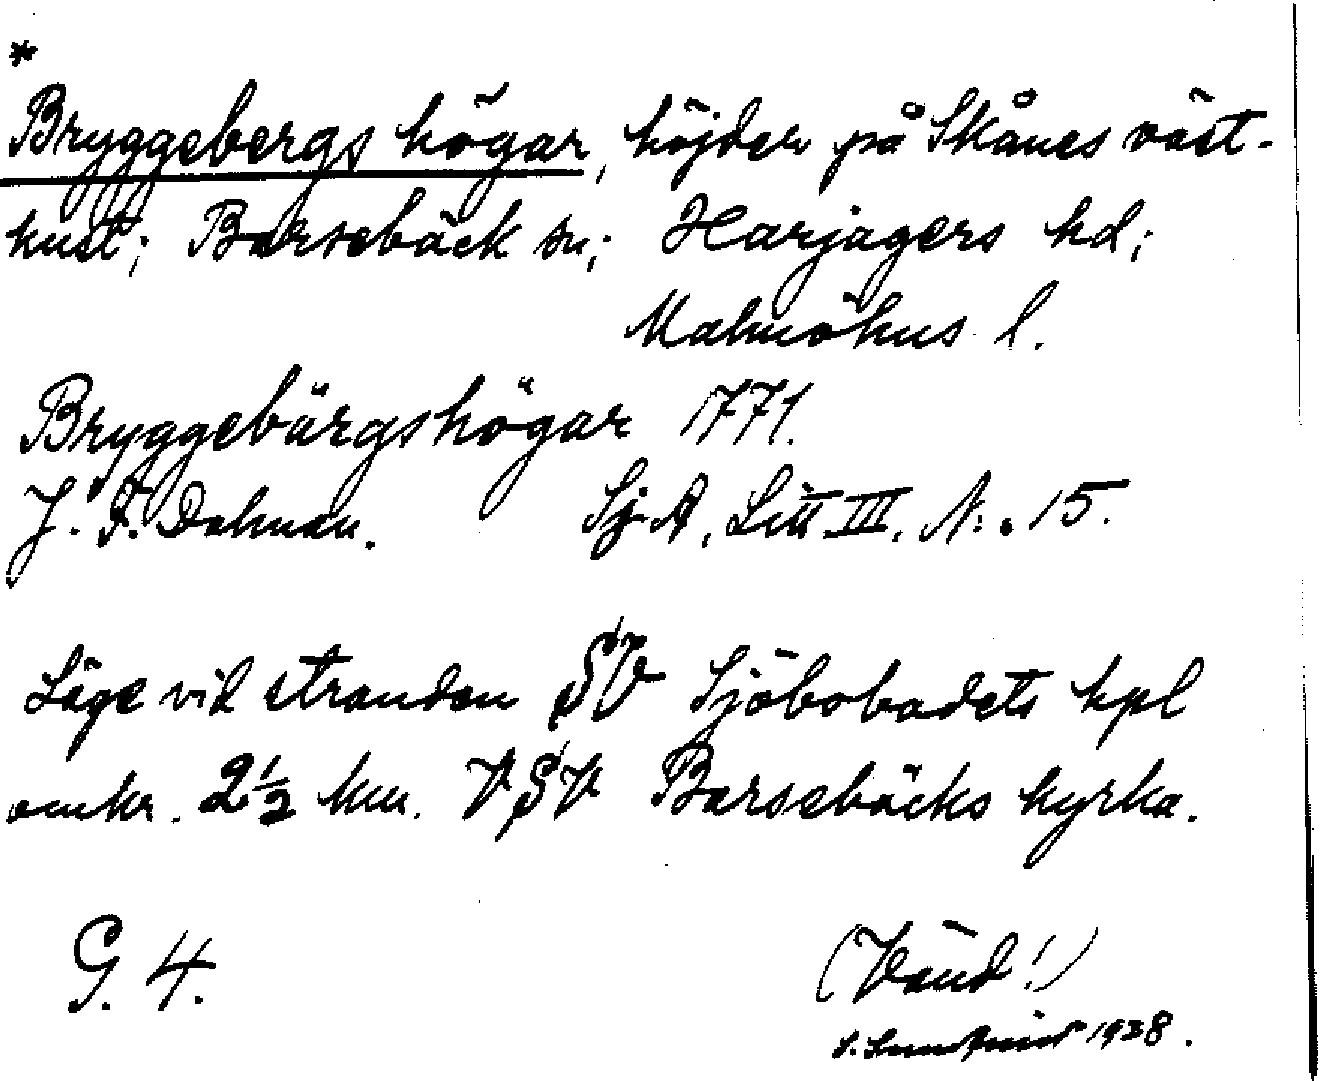 *
Bryggebergs högar, höjder på Skånes väst-
kust; Barsebäck sn; Harjagers hd;
Malmöhus l.
Bryggebärgshögar 1771.
J. F. Dahman. Sj A, Litt III. N:. 15.
Läge vid stranden SV Sjöbobadets hpl
omkr. 2 1/2 km. VSV Barsebäcks kyrka.
G. 4. (Vänd!)
1938.